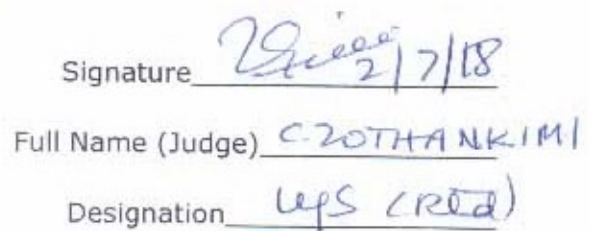 Signature 2/7/18
Full Name (Judge) C. ZOTHANKIMI
Designation (Rtd)